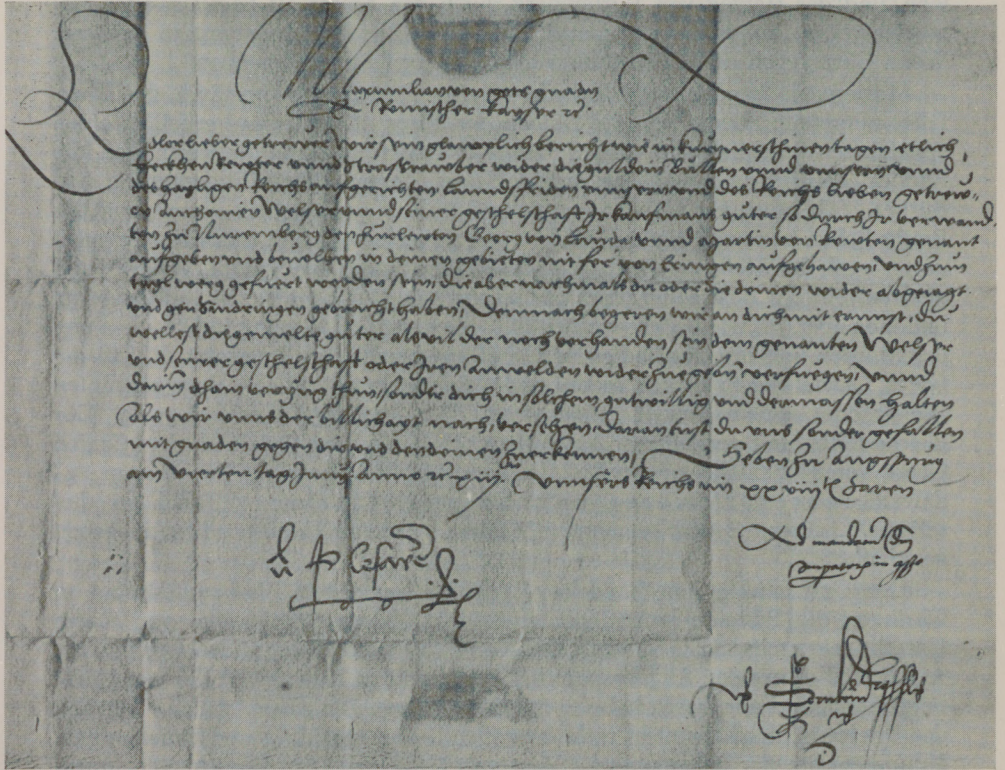 Maximilian von gots gnadn
Romischer Kayser rc.
Edler lieber getrewer Wir sein glauplich bericht wie in kurtzverschinen tagen etlich
heckhen Rewter unnd Strasrauber wider die guldein Bullen unnd unnsern unnd
des hayligen Reichs aufgerichten Lanndsfriden unnsern und des Reichs lieben getrew-
en Anthonien Welser unnd seiner geselschaft Ir kaufmans guter so durch Ir verwand
ten zu Nuremberg den furlewten Georg von Lauda unnd Martin von Rewten genant
aufgeben und bevolhen in deinen gebieten nit fer von Eringen aufgehawen, und zum
tayl weg gefuert worden sein, die aber nachmals du oder die deinen wider abgejagt
und gen Sindringen gebracht haben, Demnach begeren wir an dich mit ernnst, du
wellest die gemelte guter als vil der noch verhanden sein dem genanten Welser
und seiner geselschaft oder Iren Anwelden wider zuegebn verfuegen, unnd
darinn kham verzug thun, sonder dich in solchem gutwillig und dermassen halten
Als wir unns der billichait nach, versehen, daran tust du uns sonder gefallen
mit gnaden gegen dir und den deinen zuerkennen, Geben zu Augspurg
am Vierten tag Junij Anno rc xiij. Unnsers Reichs im xxviijten Jaren
p Cesarem
Ad mandatum dni
Imperatoris in